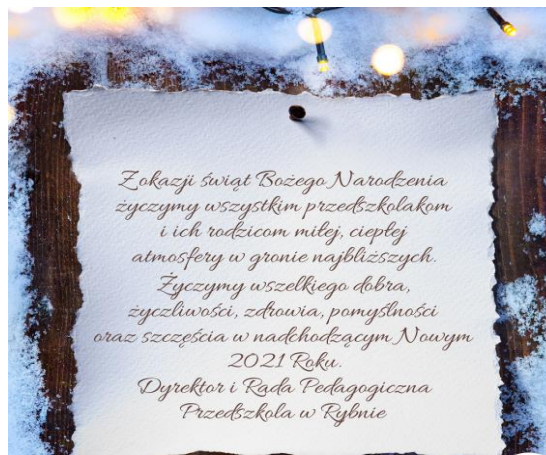 Z okazji świąt Bożego Narodzenia
życzymy wszystkim przedszkolakom
i ich rodzicom miłej, ciepłej
atmosfery w gronie najbliższych.
Życzymy wszelkiego dobra,
życzliwości, zdrowia, pomyślności
oraz szczęścia w nadchodzącym Nowym
2021 Roku.
Dyrektor i Rada Pedagogiczna
Przedszkola w Rybnie